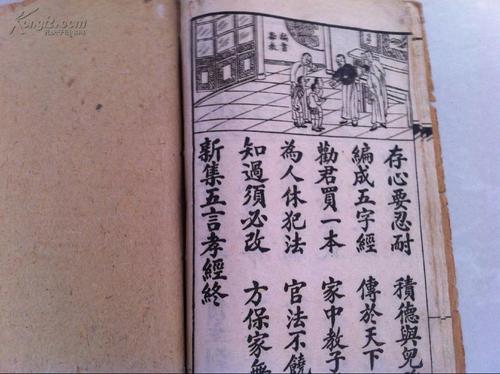 Kongfz.com
存心要忍耐 積德與兒
編成五字經 傳於天下
勸君買一本 家中教子
為人休犯法 官法不饒
知過須必改 方保家無
新集五言孝經終